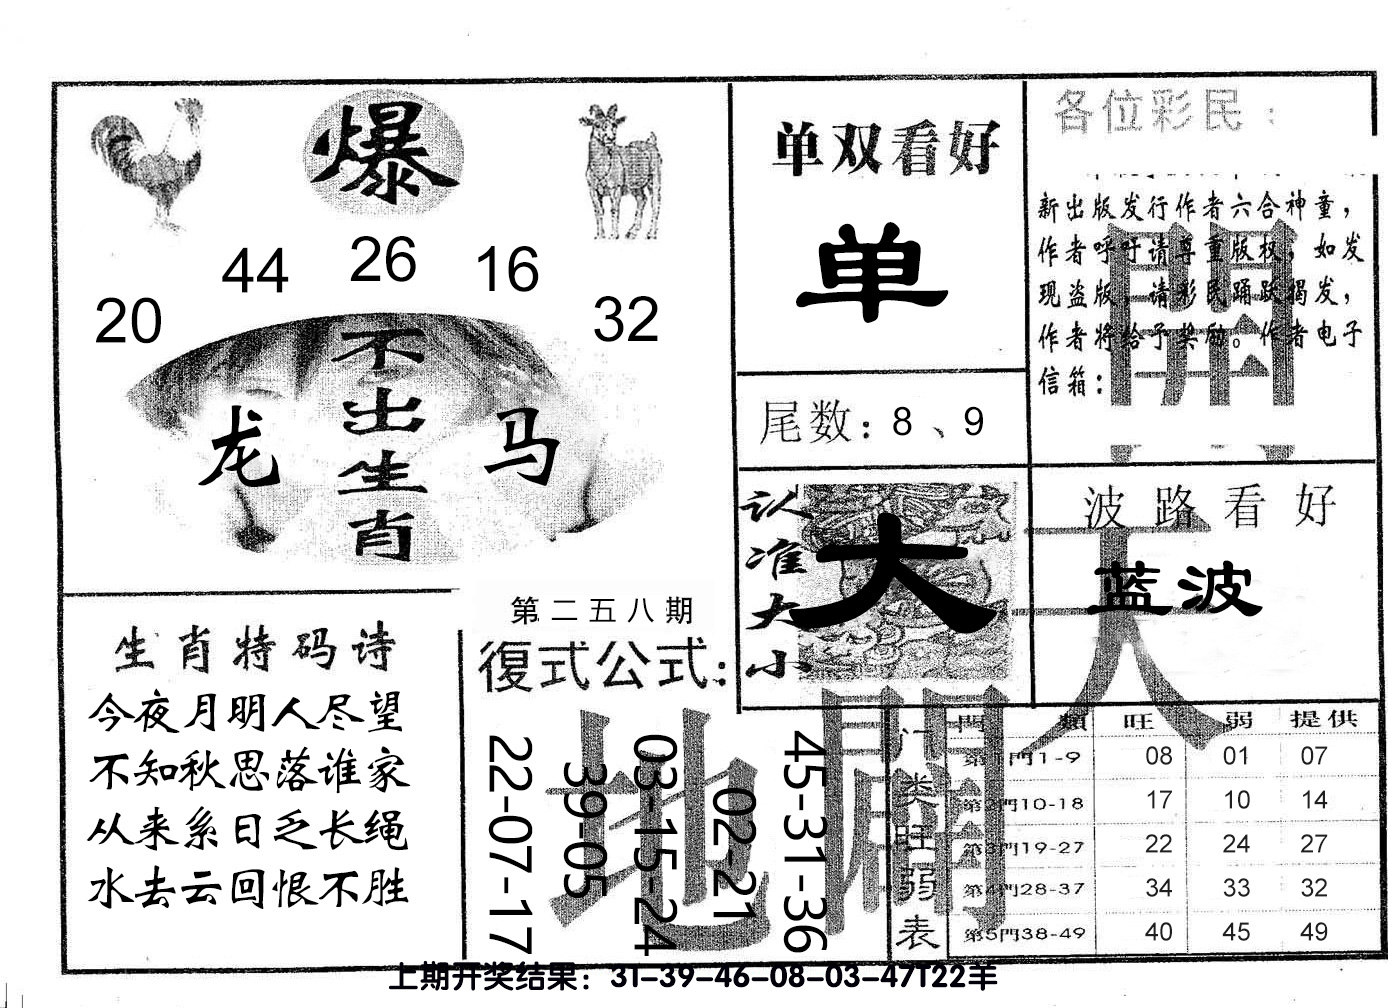 爆
44 26 16
20 32
不出生肖
龙 马
生肖特码诗
今夜月明人尽望
不知秋思落谁家
从来系日乏长绳
水去云回恨不胜
第二五八期
復式公式：
22-07-17
39-05
03-15-24
02-21
45-31-36
单双看好
单
尾数：8、9
认准大小
大
各位彩民：
新出版发行作者六合神童，
作者呼吁请尊重版权，如发
现盗版，请彩民踊跃揭发，
作者将给予奖励。作者电子
信箱：
波路看好
蓝波
天
地
開
门类旺弱表
門 類 旺 弱 提供
第1門1-9 08 01 07
第2門10-18 17 10 14
第3門19-27 22 24 27
第4門28-37 34 33 32
第5門38-49 40 45 49
上期开奖结果：31-39-46-08-03-47T22羊